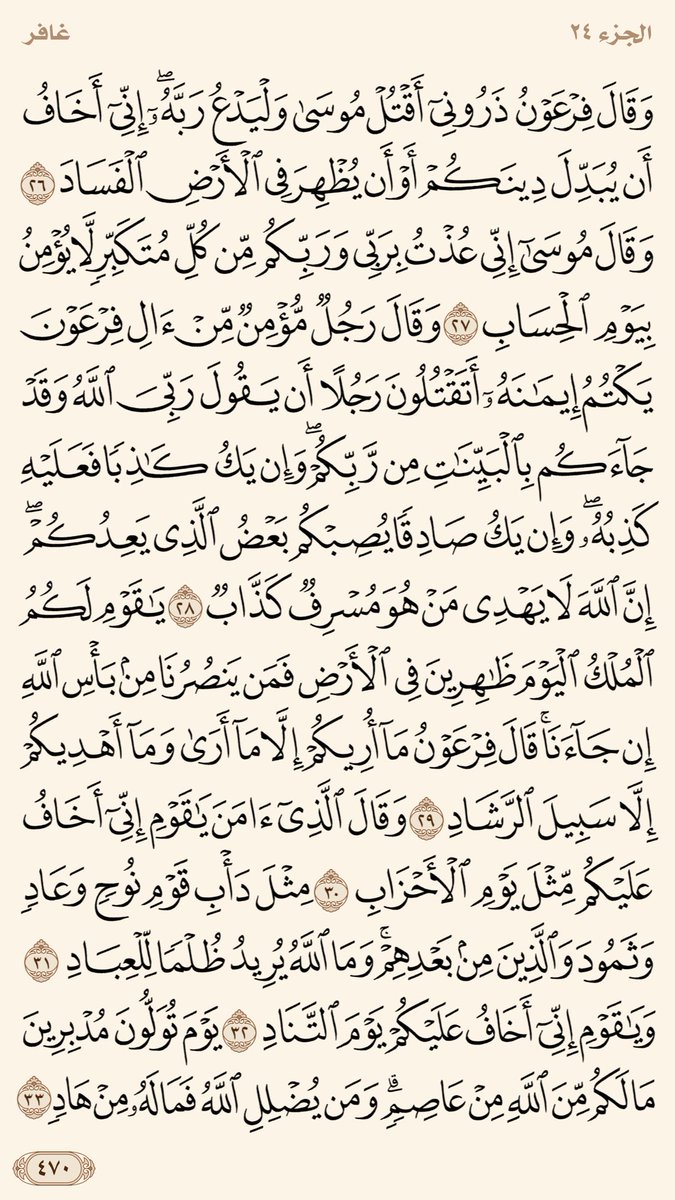 الجزء ٢٤
غافر
وَقَالَ فِرْعَوْنُ ذَرُونِىٓ أَقْتُلْ مُوسَىٰ وَلْيَدْعُ رَبَّهُۥٓۖ إِنِّىٓ أَخَافُ
أَن يُبَدِّلَ دِينَكُمْ أَوْ أَن يُظْهِرَ فِى ٱلْأَرْضِ ٱلْفَسَادَ ٢٦
وَقَالَ مُوسَىٰٓ إِنِّى عُذْتُ بِرَبِّى وَرَبِّكُم مِّن كُلِّ مُتَكَبِّرٍ لَّا يُؤْمِنُ
بِيَوْمِ ٱلْحِسَابِ ٢٧ وَقَالَ رَجُلٌ مُّؤْمِنٌ مِّنْ ءَالِ فِرْعَوْنَ
يَكْتُمُ إِيمَـٰنَهُۥٓ أَتَقْتُلُونَ رَجُلًا أَن يَقُولَ رَبِّىَ ٱللَّهُ وَقَدْ
جَآءَكُم بِٱلْبَيِّنَـٰتِ مِن رَّبِّكُمْۖ وَإِن يَكُ كَـٰذِبًا فَعَلَيْهِ
كَذِبُهُۥۖ وَإِن يَكُ صَادِقًا يُصِبْكُم بَعْضُ ٱلَّذِى يَعِدُكُمْۖ
إِنَّ ٱللَّهَ لَا يَهْدِى مَنْ هُوَ مُسْرِفٌ كَذَّابٌ ٢٨ يَـٰقَوْمِ لَكُمُ
ٱلْمُلْكُ ٱلْيَوْمَ ظَـٰهِرِينَ فِى ٱلْأَرْضِ فَمَن يَنصُرُنَا مِنۢ بَأْسِ ٱللَّهِ
إِن جَآءَنَاۚ قَالَ فِرْعَوْنُ مَآ أُرِيكُمْ إِلَّا مَآ أَرَىٰ وَمَآ أَهْدِيكُمْ
إِلَّا سَبِيلَ ٱلرَّشَادِ ٢٩ وَقَالَ ٱلَّذِىٓ ءَامَنَ يَـٰقَوْمِ إِنِّىٓ أَخَافُ
عَلَيْكُم مِّثْلَ يَوْمِ ٱلْأَحْزَابِ ٣٠ مِثْلَ دَأْبِ قَوْمِ نُوحٍ وَعَادٍ
وَثَمُودَ وَٱلَّذِينَ مِنۢ بَعْدِهِمْۚ وَمَا ٱللَّهُ يُرِيدُ ظُلْمًا لِّلْعِبَادِ ٣١
وَيَـٰقَوْمِ إِنِّىٓ أَخَافُ عَلَيْكُمْ يَوْمَ ٱلتَّنَادِ ٣٢ يَوْمَ تُوَلُّونَ مُدْبِرِينَ
مَا لَكُم مِّنَ ٱللَّهِ مِنْ عَاصِمٍۗ وَمَن يُضْلِلِ ٱللَّهُ فَمَا لَهُۥ مِنْ هَادٍ ٣٣
٤٧٠